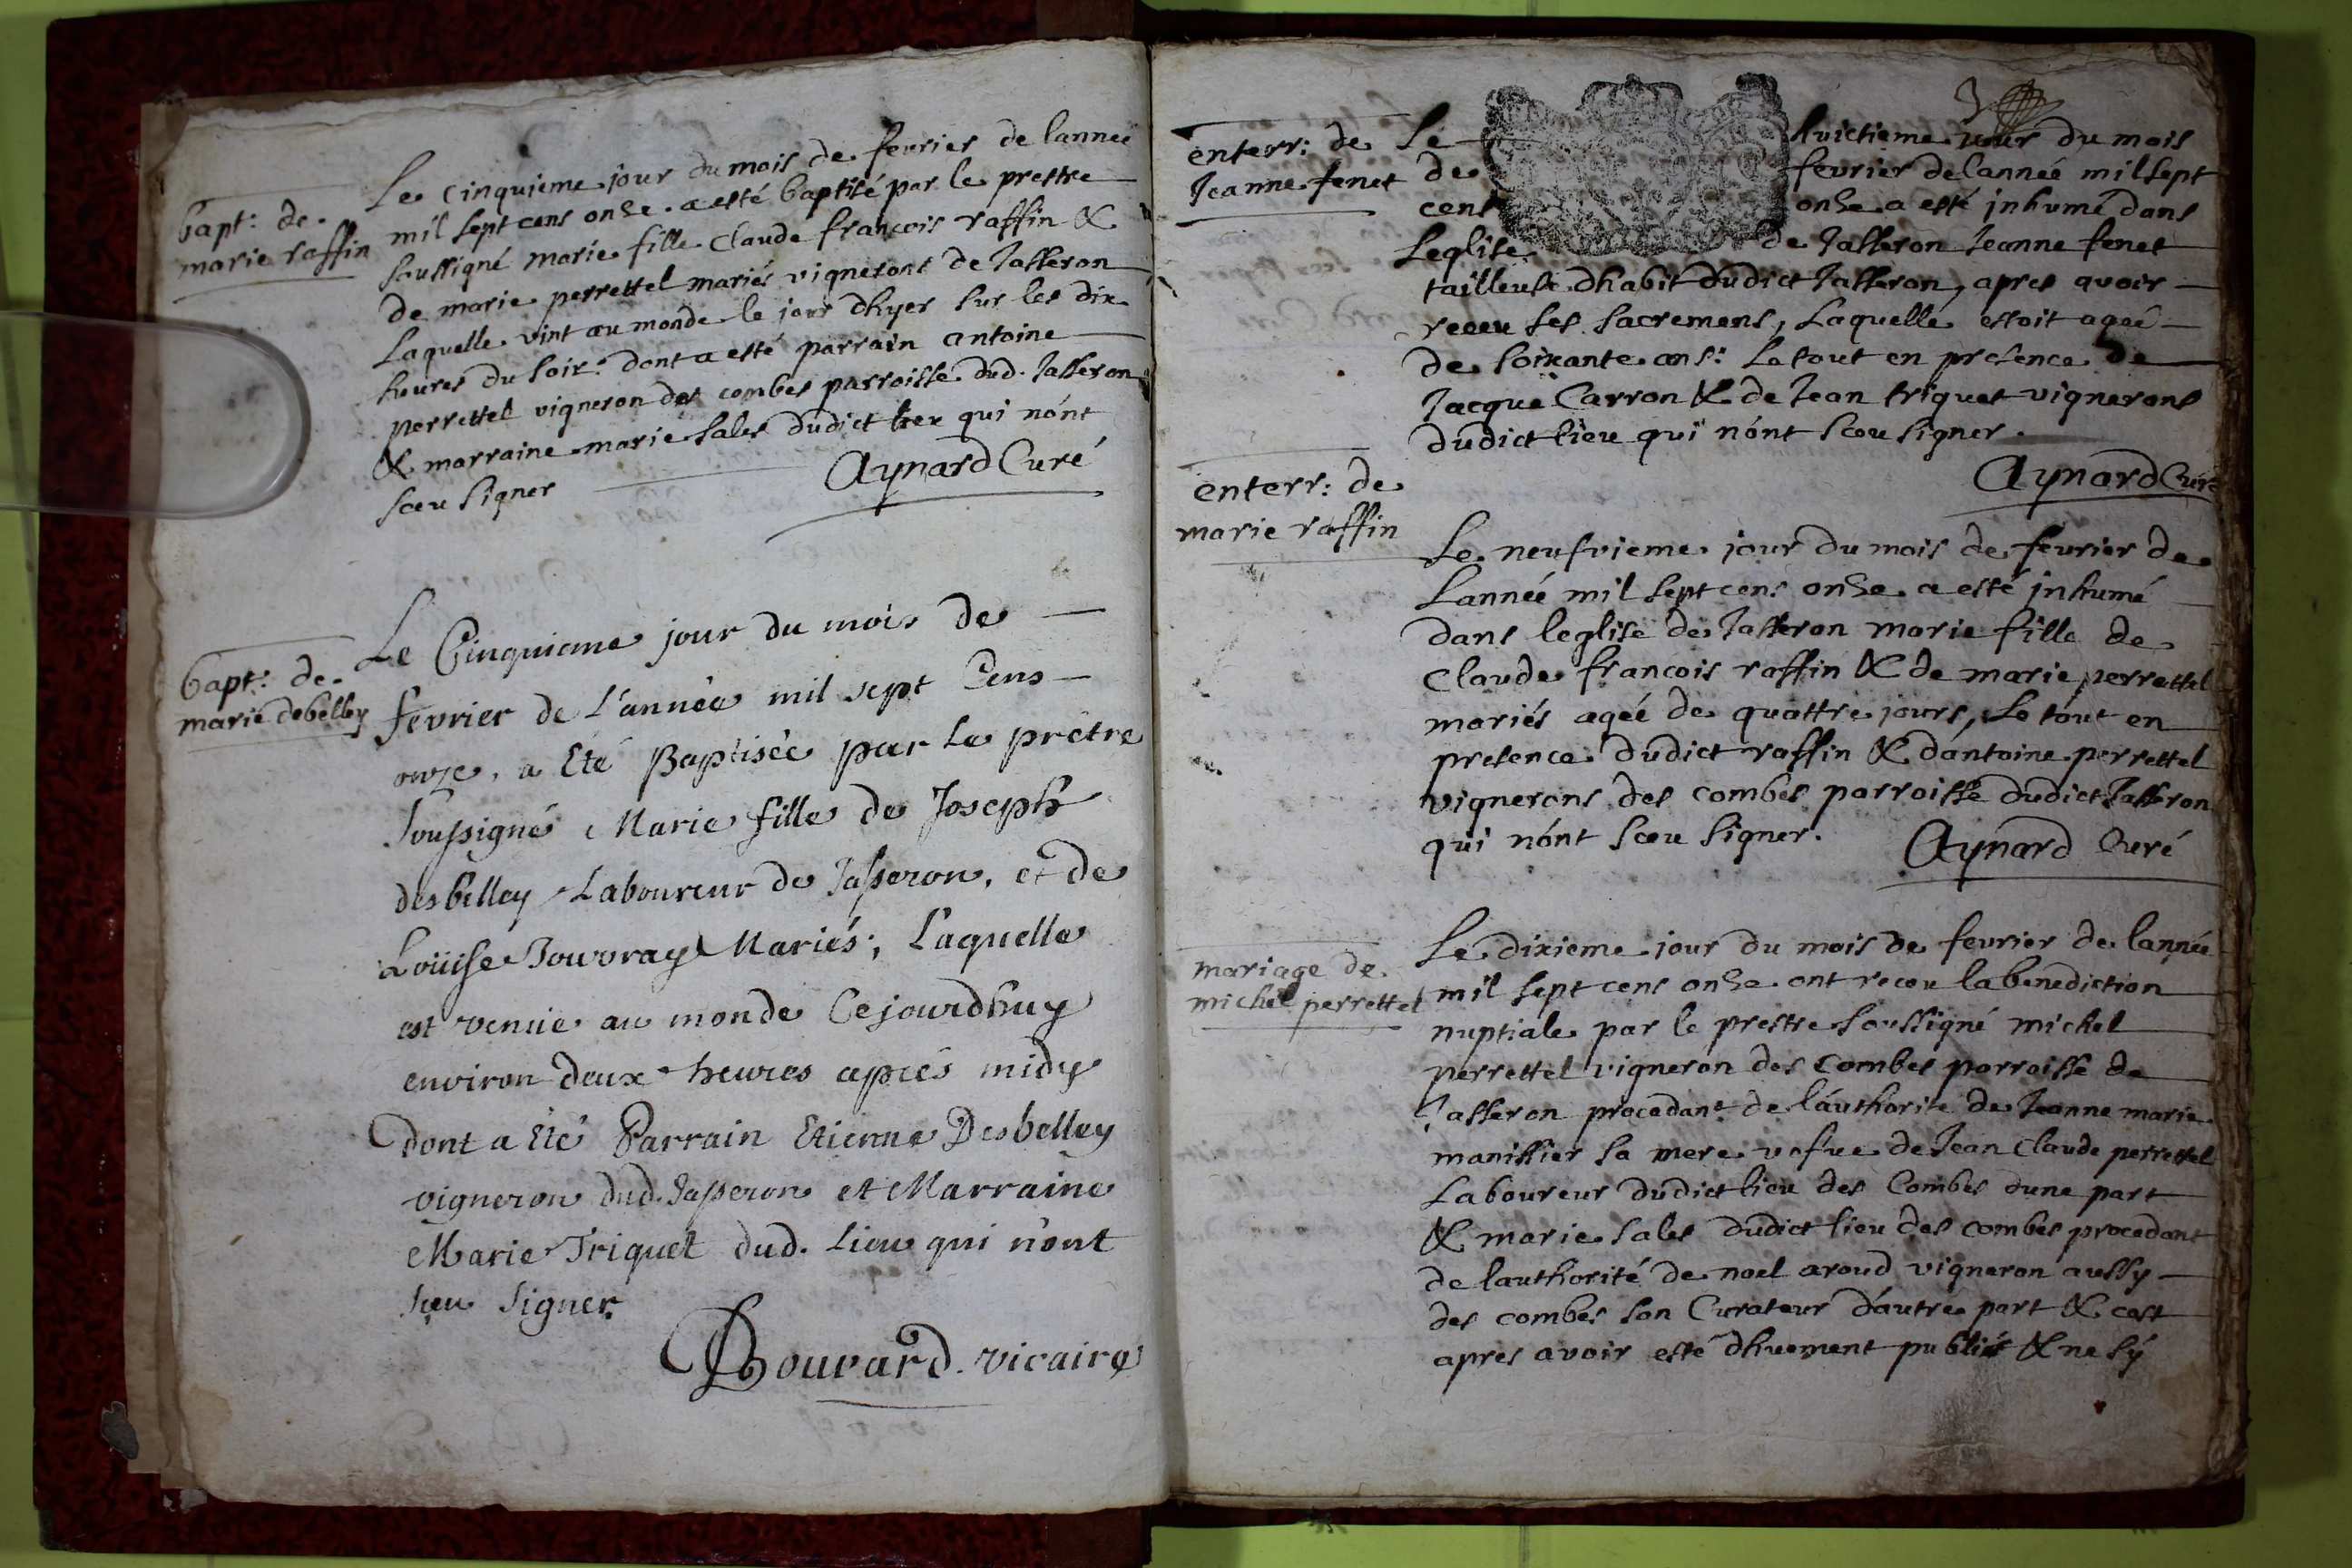 bapt: de
marie raffin
Le cinquieme jour du mois de feurier de lanneé
mil sept cens onze. a esté baptisé par le prestre
soussigné marie fille claude francois raffin &
de marie perrettel mariés vignerons de Jasseron
Laquelle vint au monde le jour dhyer sur les dix
heures du soir: dont a esté parrain antoine
perrettel vigneron des combes parroisse dud. Jasseron
& marraine marie sales dudict lieu qui nónt
sceu signer
Aynard Curé
bapt: de
marie debelley
Le Cinquieme jour du mois de
fevrier de L'année mil sept Cens
onze, a Eté Baptisée par Le prêtre
soussigné Marie fille de Joseph
desbelley Laboureur de Jasseron, et de
Loüise Jouvray Mariés; Laquelle
est venüe au monde Cejourdhuy
environ deux heures aprés midy
dont a Eté Parrain Etienne Desbelley
vigneron dud. Jasseron et Marraine
Marie Triquet dud. Lieu qui n'ont
sçeu signer
Bouvard vicaire
3
enterr: de
Jeanne fenet
Le huictieme jour du mois
de feurier de lannée mil sept
cens onze a esté jnhumé dans
Leglise de Jasseron Jeanne fenet
tailleuse dhabit dudict Jasseron, apres avoir
receu ses sacremens, Laquelle estoit ageé
de soixante ans: Le tout en presence de
Jacque Carron & de Jean triquet vignerons
dudict lieu qui nónt sceu signer.
Aynard Curé
enterr: de
marie raffin
Le neufvieme jour du mois de feurier de
Lanneé mil sept cens onze a esté jnhumé
dans leglise de Jasseron marie fille de
claude francois raffin & de marie perrettel
mariés ageé de quattre jours, Le tout en
presence dudict raffin & dántoine perrettel
vignerons des combes parroisse dudict Jasseron
qui nónt sceu signer.
Aynard Curé
mariage de
michel perrettel
Le dixieme jour du mois de feurier de lannée
mil sept cens onze ont receu la benediction
nuptiale par le prestre soussigné michel
perrettel vigneron des Combes parroisse de
Jasseron procedant de láuthorite de Jeanne marie
manissier sa mere vefue de Jean Claude perrettel
Laboureur dudict lieu des Combes dune part
& marie sales dudict lieu des combes procedant
de lauthorité de noel aroud vigneron aussy
des combes son Curateur dáutre part & cest
apres avoir esté dhuement publiés & ne sý